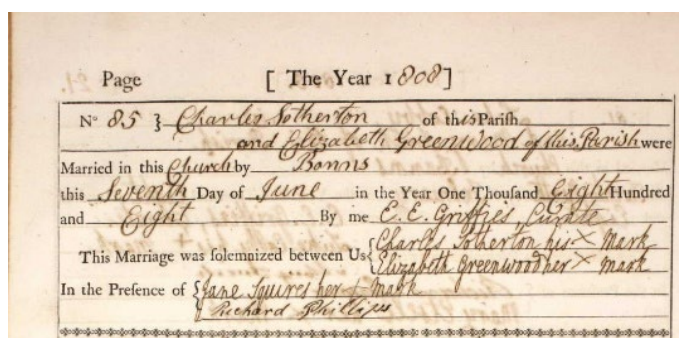 Page [ The Year 1808]
No 85 } Charles Sotherton of this Parish
and Elizabeth Greenwood of this Parish were
Married in this Church by Banns
this Seventh Day of June in the Year One Thousand Eight Hundred
and Eight By me E. E. Griffies, Curate
This Marriage was solemnized between Us { Charles Sotherton his X Mark
Elizabeth Greenwood her X Mark
In the Presence of { Jane Squires her + Mark
Richard Phillips